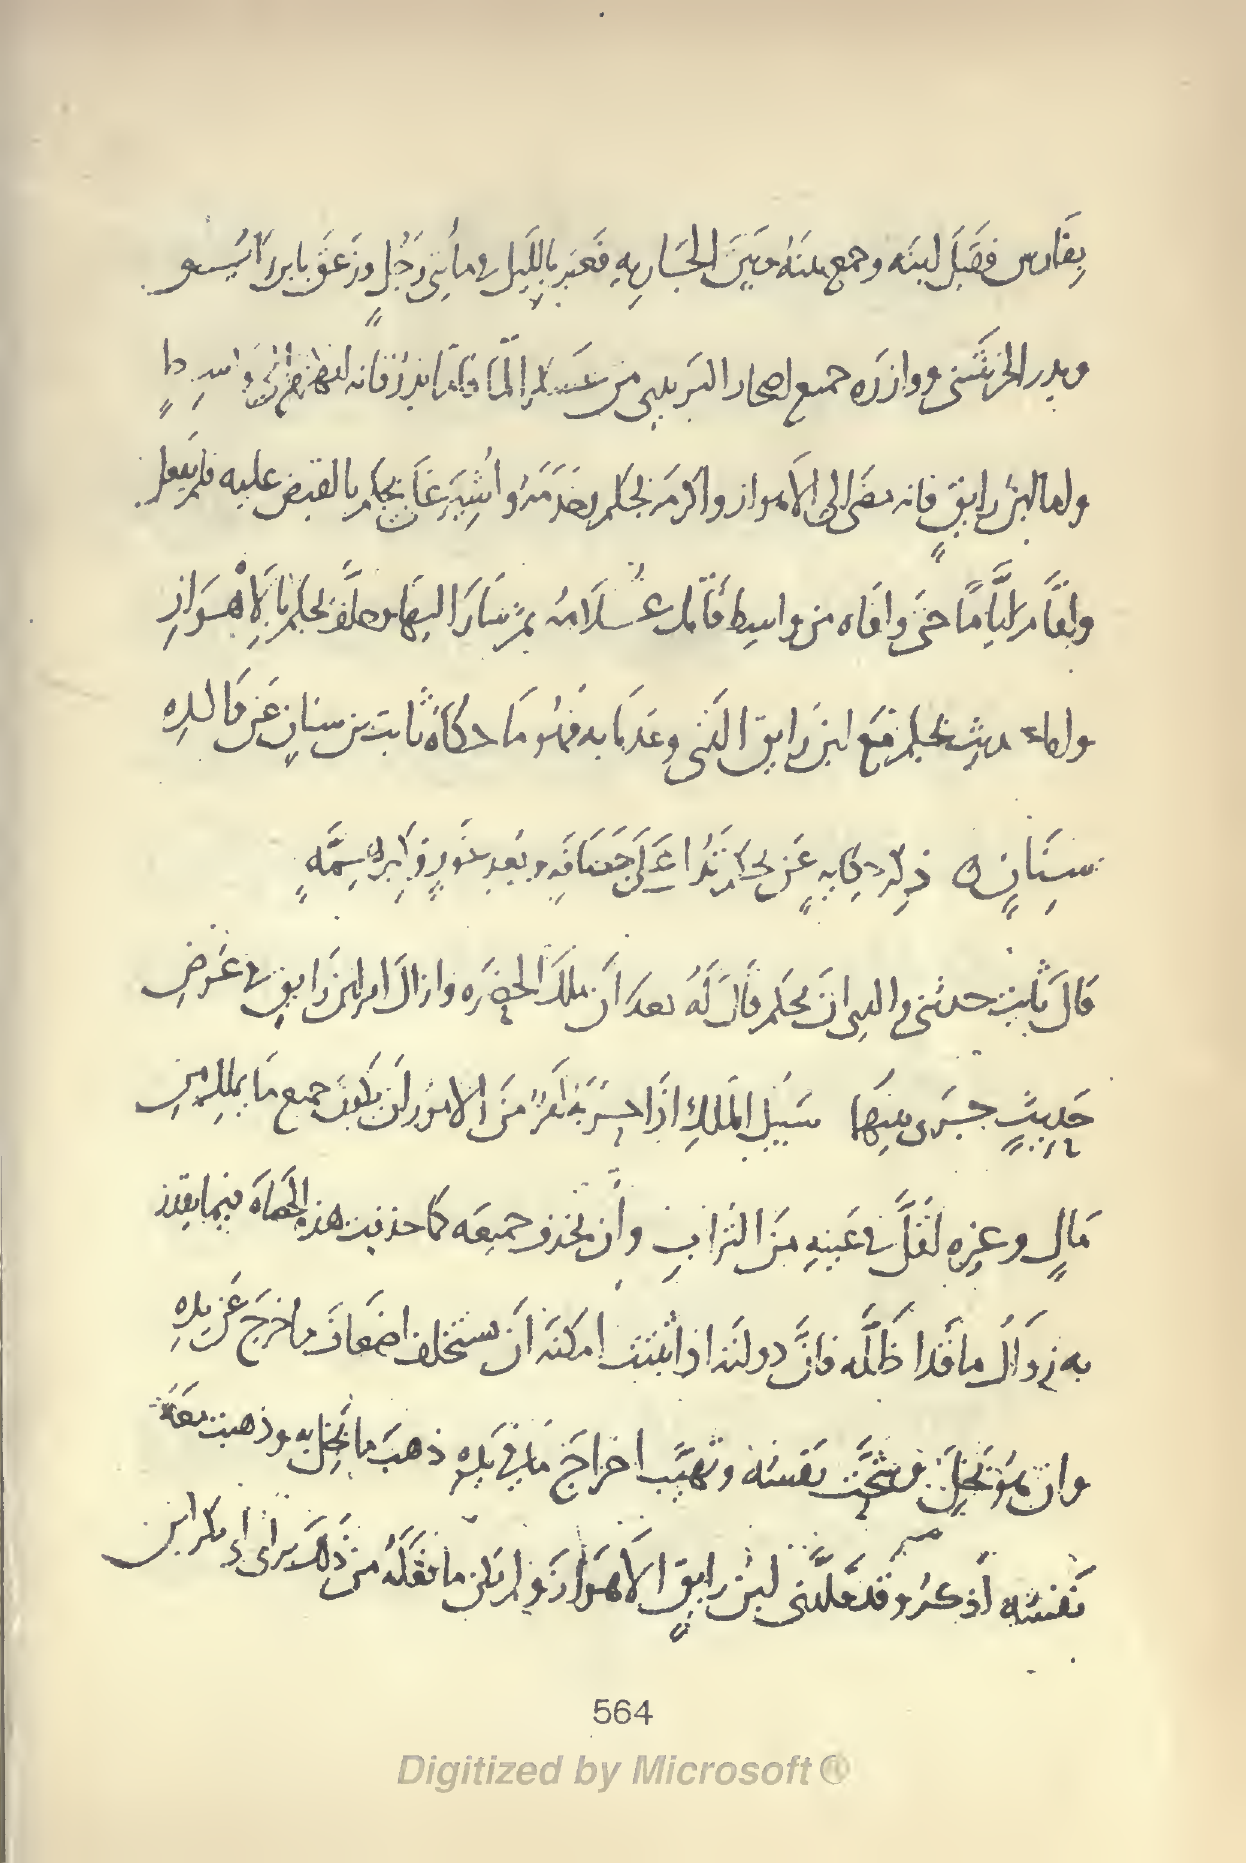 بفارس فقبل لبنه وجمع بينه وبين الجساريه فعبر بالليل في مأتى رجل وزعق بابى
وبدر الخرشنى ووازره جميع اصحاب البريدى من عسكر الما فاما بدر فانه انهزم الى واسط
ولما ابن رايق فانه مضى الى الاهواز واكرمه بجكم وخدمه واشير على بجكم بالقبض عليه فلم يفعل
واقام اياما حتى وافاه من واسط فاتك غلامه ثم سار اليها وخلف بجكم بالاهواز
ولما حديث بجكم مع ابن رايق الذى وعدنا به فهو ما حكاه ثابت بن سنان عن والده
سنان ذكر حكايه عن بجكم تدل على حصافه وبعد غور وكبر همه
قال ثابت حدثنى والدى ان بجكم قال له بعد ان ملك الحضره وازال امر ابن رايق في عرض
حديث جرى بينهما سبيل الملك اذا حزبه امر من الامور ان يكون جميع ما يملك من
مال وغيره اقل في عينه من التراب وان يحذف جميعه كما حذفت هذه الحصاه فيما يقدر
به زوال ما قد اظله فان دولته اذا ثبتت امكنه ان يستخلف اضعاف ما خرج عن يده
وان هو بخل وشحت نفسه وتهيب اخراج ما في يده ذهب ما بخل به وذهبت معه
نفسه اذكر وقد قلدنى ابن رايق الاهواز ولم يكن ما فعله من ذلك براى ابى بكر ابن
564
Digitized by Microsoft ®